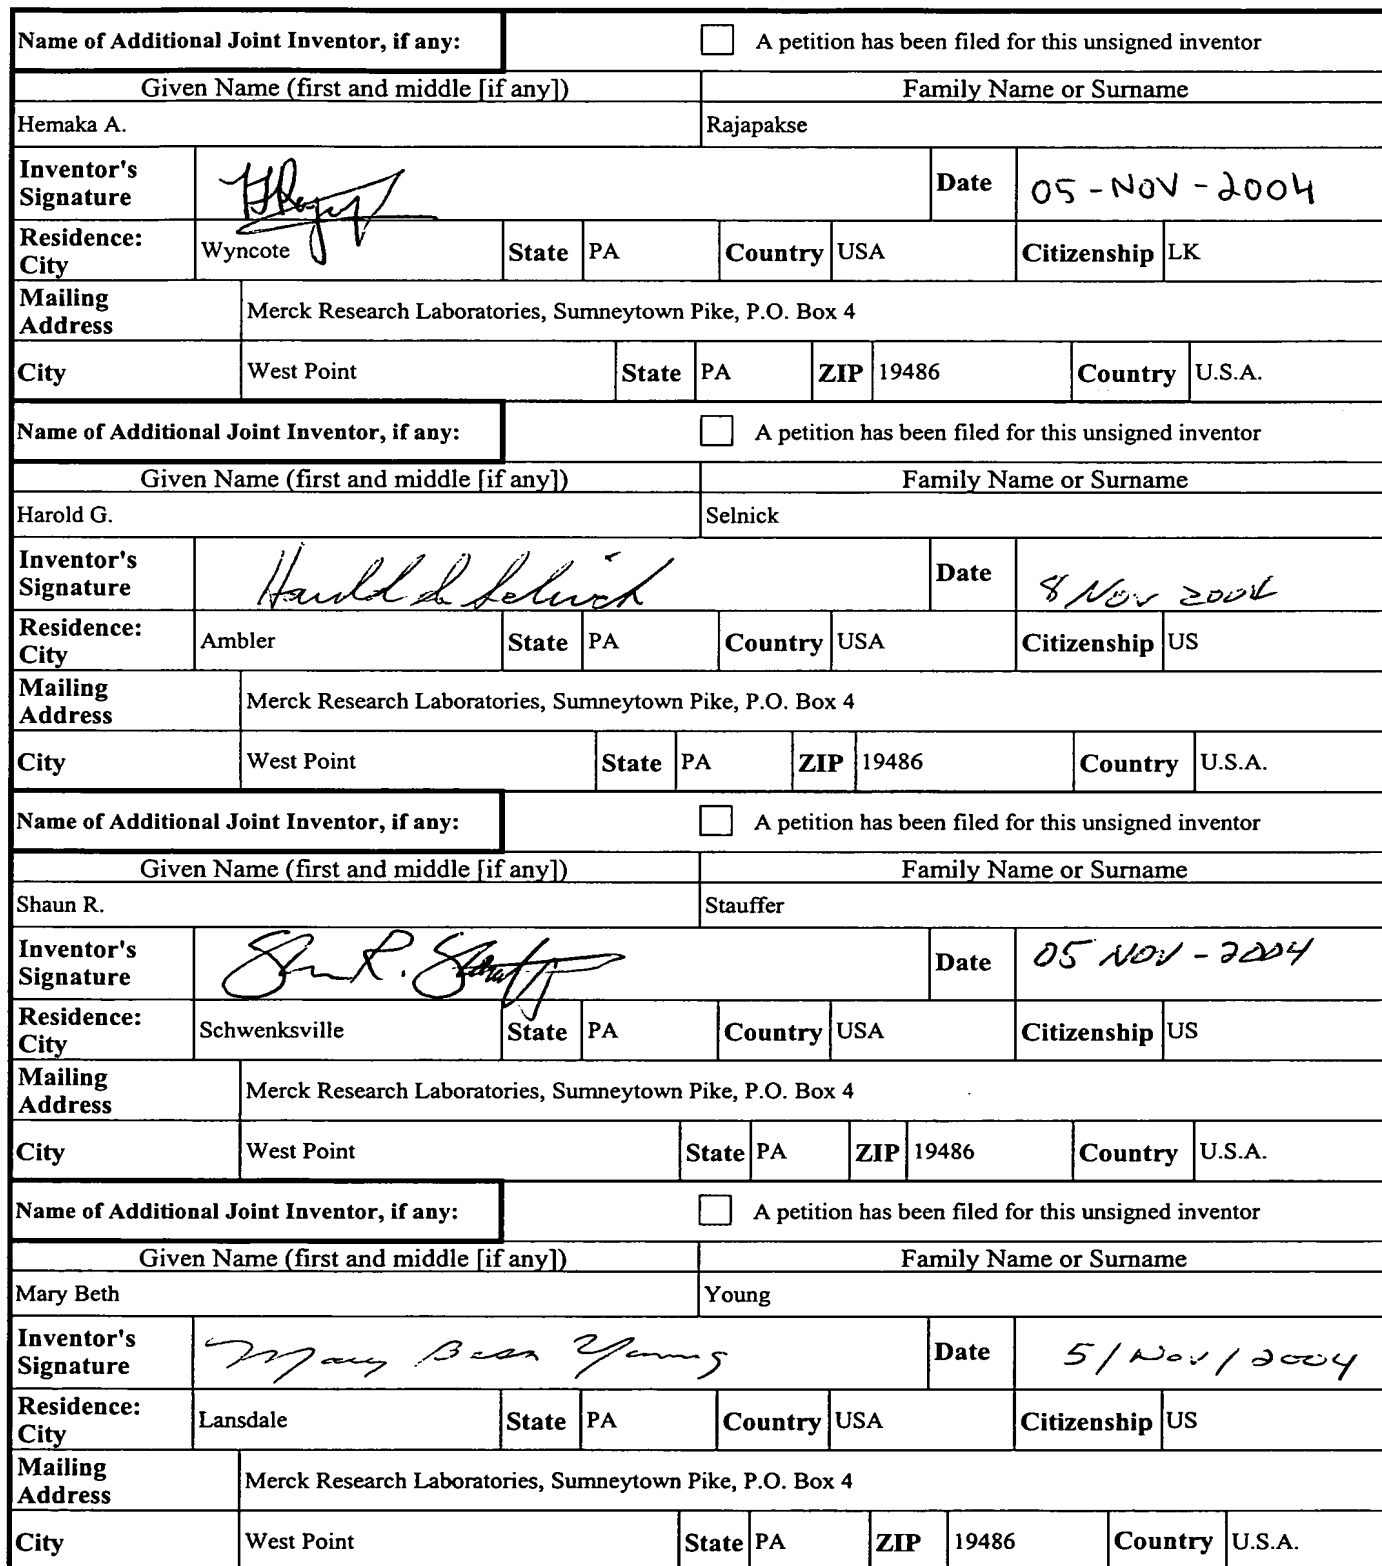 Name of Additional Joint Inventor, if any: A petition has been filed for this unsigned inventor
Given Name (first and middle [if any]) Family Name or Surname
Hemaka A. Rajapakse
Inventor's Signature Date 05-NOV-2004
Residence: City Wyncote State PA Country USA Citizenship LK
Mailing Address Merck Research Laboratories, Sumneytown Pike, P.O. Box 4
City West Point State PA ZIP 19486 Country U.S.A.
Name of Additional Joint Inventor, if any: A petition has been filed for this unsigned inventor
Given Name (first and middle [if any]) Family Name or Surname
Harold G. Selnick
Inventor's Signature Harold G. Selnick Date 8 Nov 2004
Residence: City Ambler State PA Country USA Citizenship US
Mailing Address Merck Research Laboratories, Sumneytown Pike, P.O. Box 4
City West Point State PA ZIP 19486 Country U.S.A.
Name of Additional Joint Inventor, if any: A petition has been filed for this unsigned inventor
Given Name (first and middle [if any]) Family Name or Surname
Shaun R. Stauffer
Inventor's Signature Shaun R. Stauffer Date 05 NOV-2004
Residence: City Schwenksville State PA Country USA Citizenship US
Mailing Address Merck Research Laboratories, Sumneytown Pike, P.O. Box 4
City West Point State PA ZIP 19486 Country U.S.A.
Name of Additional Joint Inventor, if any: A petition has been filed for this unsigned inventor
Given Name (first and middle [if any]) Family Name or Surname
Mary Beth Young
Inventor's Signature Mary Beth Young Date 5/Nov/2004
Residence: City Lansdale State PA Country USA Citizenship US
Mailing Address Merck Research Laboratories, Sumneytown Pike, P.O. Box 4
City West Point State PA ZIP 19486 Country U.S.A.